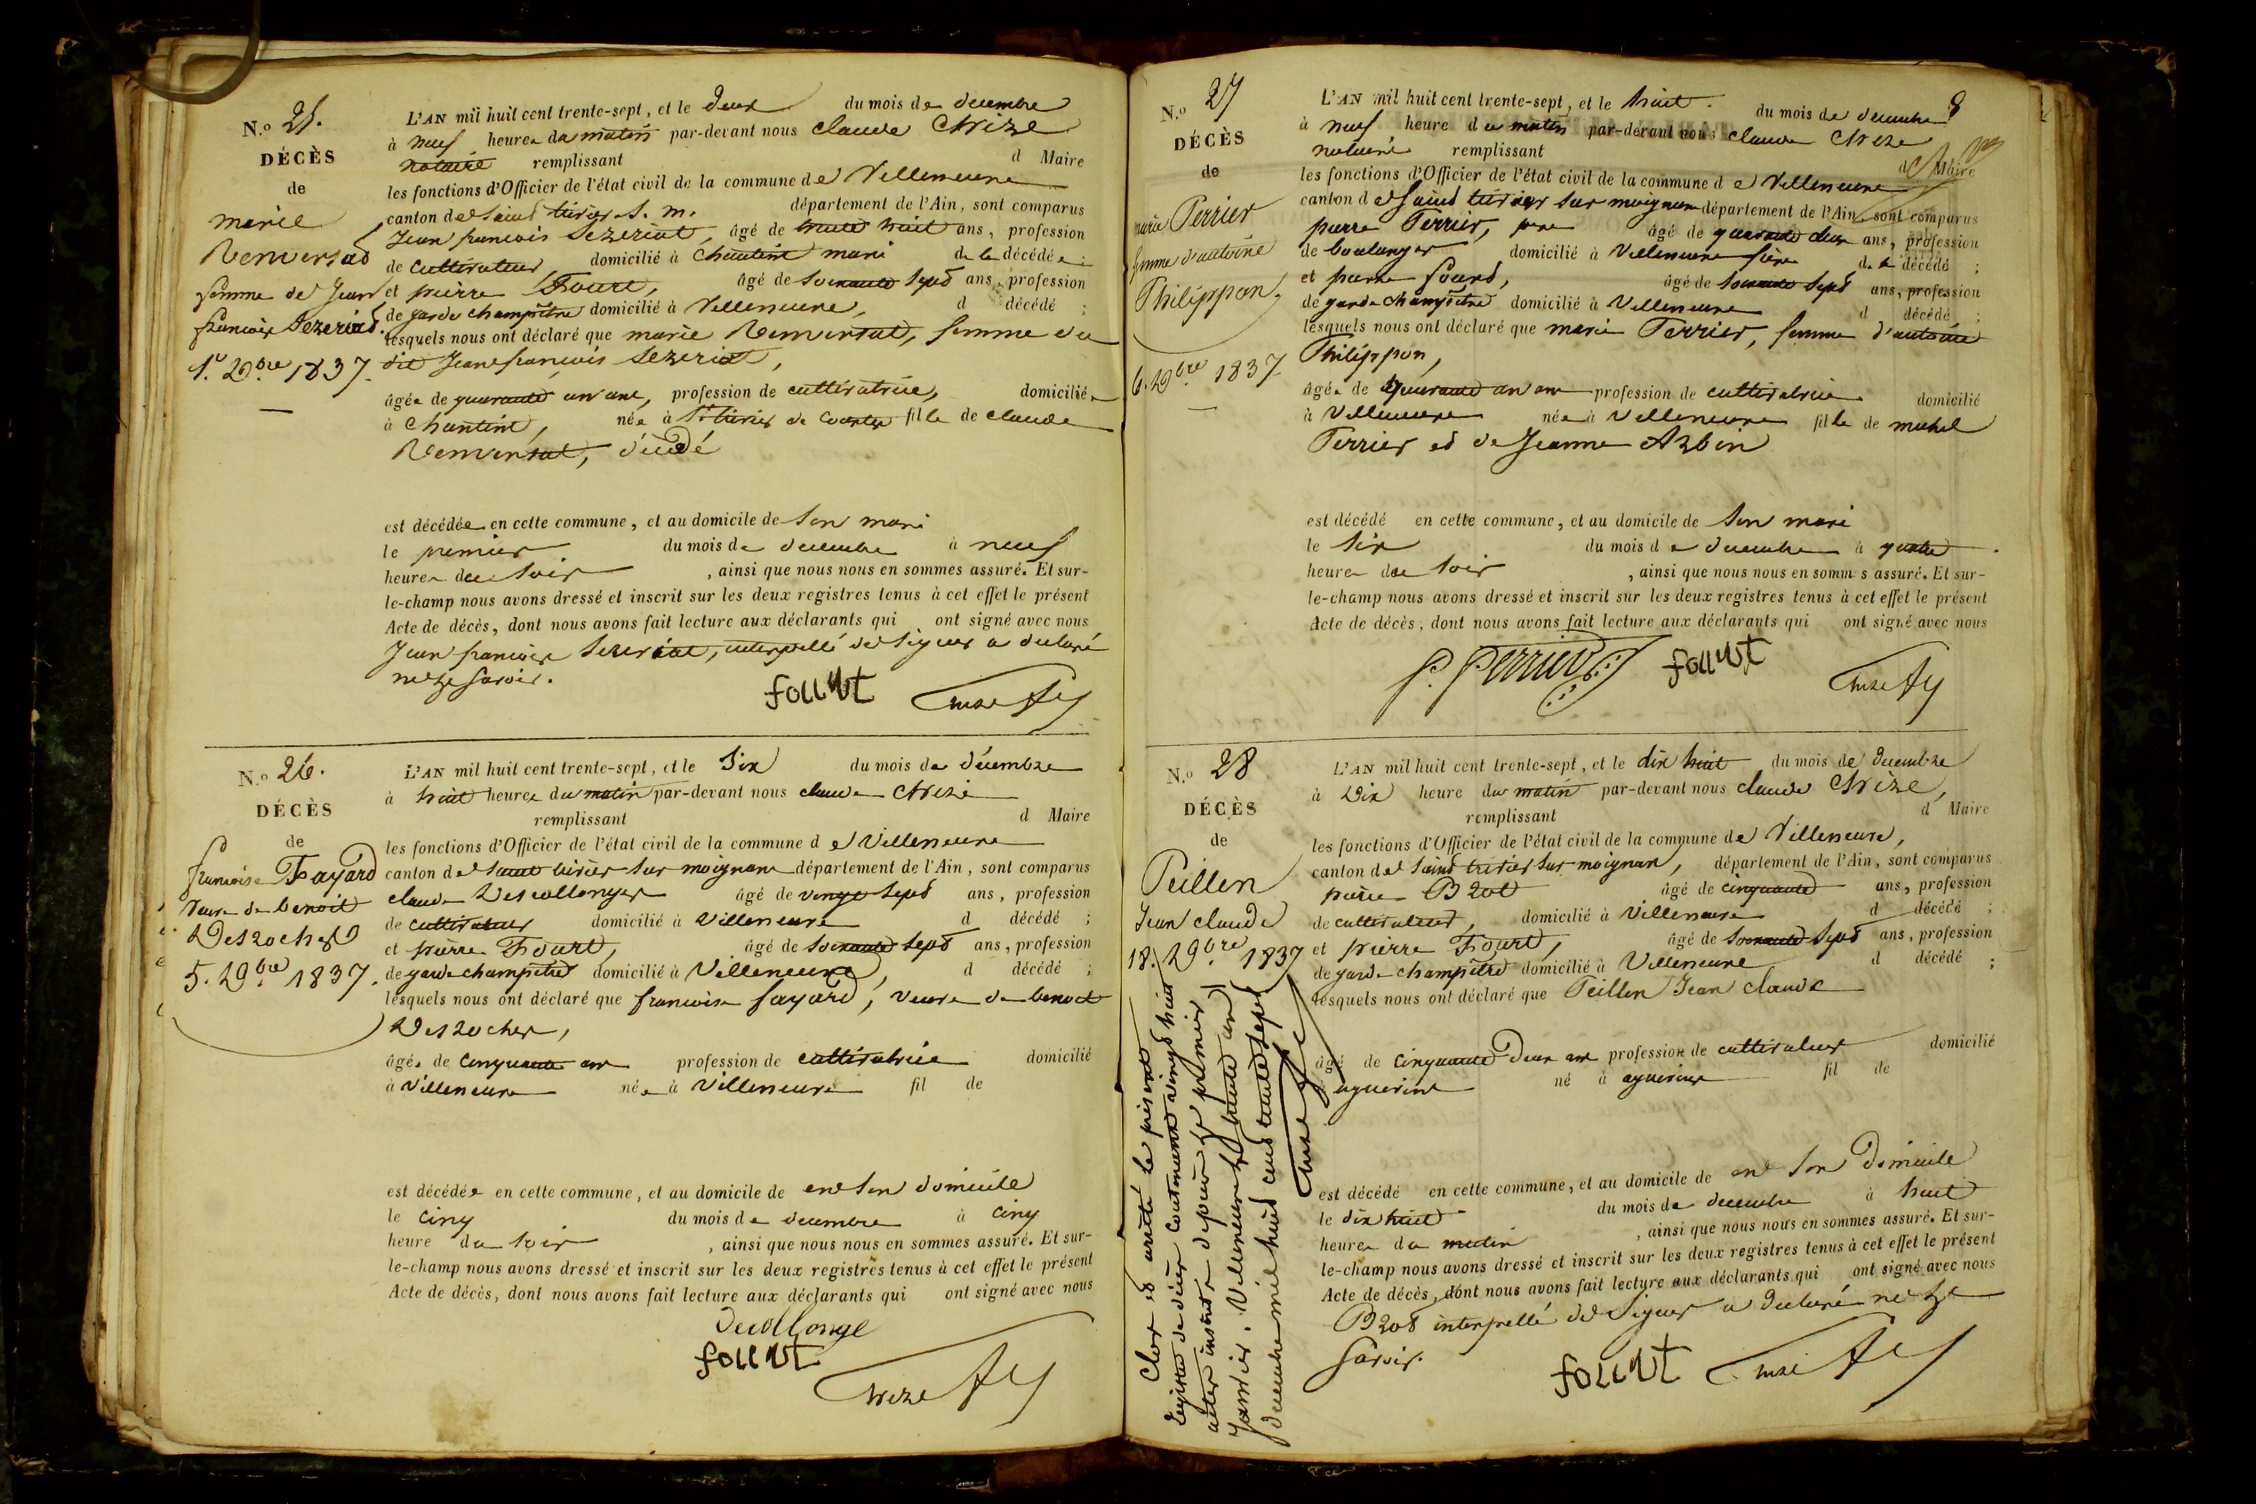 N.o 25.
DÉCÈS
de
marie
Renversad
femme de Jean
francoix Sezeriad.
1.er 10bre 1837.
L'AN mil huit cent trente-sept, et le deux du mois de decembre
à neuf heures du matin par-devant nous claude
notaire remplissant d Maire
les fonctions d'Officier de l'état civil de la commune de Villeneuve
canton de Saint trivier S. m. département de l'Ain, sont comparus
Jean francois Sezeriat, âgé de trente huit ans, profession
de cultivateur, domicilié à Chantint mari de la décédée ;
et pierre Fourt, âgé de soixante sept ans, profession
de garde champêtre domicilié à Villeneuve, d décédé ;
lesquels nous ont déclaré que marie Renversat, femme du
dit Jean françois Sezeriat,
âgée de quarante un ans, profession de cultivatrice, domiciliée
à Chantint, née à St. trivier de Courtes fille de claude
Renversat, décédé
est décédée en cette commune, et au domicile de son mari
le premier du mois de decembre à neuf
heures du soir, ainsi que nous nous en sommes assuré. Et sur-
le-champ nous avons dressé et inscrit sur les deux registres tenus à cet effet le présent
Acte de décès, dont nous avons fait lecture aux déclarants qui ont signé avec nous
Jean francois Sezeriat, interpellé de signer a declaré
ne le savoir.
fourt
N.o 26.
DÉCÈS
de
francoise Fayard
veuve de benoit
Desroches
5. 10bre 1837.
L'AN mil huit cent trente-sept, et le Six du mois de décembre
à huit heures du matin par-devant nous claude
remplissant d Maire
les fonctions d'Officier de l'état civil de la commune de Villeneuve
canton de Saint trivier sur moignans département de l'Ain, sont comparus
claude Descollonges âgé de vingt sept ans, profession
de cultivateur domicilié à Villeneuve d décédé ;
et pierre Fourt, âgé de soixante sept ans, profession
de garde champêtre domicilié à Villeneuve, d décédé ;
lesquels nous ont déclaré que francoise fayard, veuve de benoit
Desroches,
âgée de cinquante ans profession de cultivatrice domicilié
à Villeneuve née à Villeneuve fil de
est décédée en cette commune, et au domicile de en son domicile
le cinq du mois de decembre à cinq
heure du soir, ainsi que nous nous en sommes assuré. Et sur-
le-champ nous avons dressé et inscrit sur les deux registres tenus à cet effet le présent
Acte de décès, dont nous avons fait lecture aux déclarants qui ont signé avec nous
fourt
N.o 27
DÉCÈS
de
marie Perrier
femme d'antoine
Philippon,
6. 10bre 1837
8
L'AN mil huit cent trente-sept, et le huit du mois de decembre
à neuf heure du matin par-devant nous claude
notaire remplissant d Maire
les fonctions d'Officier de l'état civil de la commune de Villeneuve
canton de Saint trivier sur moignans département de l'Ain, sont comparus
pierre Perrier, âgé de quarante deux ans, profession
de boulanger domicilié à Villeneuve frère de la décédé ;
et pierre fourt, âgé de soixante sept ans, profession
de garde champêtre domicilié à Villeneuve d décédé ;
lesquels nous ont déclaré que marie Perrier, femme d'antoine
Philippon,
âgée de quarante un ans profession de cultivatrice domicilié
à Villeneuve née à Villeneuve fille de michel
Perrier et de Jeanne Arbin
est décédé en cette commune, et au domicile de son mari
le six du mois de decembre à quatre
heures du soir, ainsi que nous nous en sommes assuré. Et sur-
le-champ nous avons dressé et inscrit sur les deux registres tenus à cet effet le présent
Acte de décès, dont nous avons fait lecture aux déclarants qui ont signé avec nous
P. Perrier fourt
N.o 28
DÉCÈS
de
Peillen
Jean claude
18. 10bre 1837
L'AN mil huit cent trente-sept, et le dix huit du mois de decembre
à Dix heure du matin par-devant nous claude
remplissant d Maire
les fonctions d'Officier de l'état civil de la commune de Villeneuve,
canton de Saint trivier sur moignans, département de l'Ain, sont comparus
pierre Brot âgé de cinquante ans, profession
de cultivateur, domicilié à Villeneuve d décédé ;
et pierre Fourt, âgé de soixante sept ans, profession
de garde champêtre domicilié à Villeneuve d décédé ;
lesquels nous ont déclaré que Peillen Jean claude
âgé de cinquante deux ans profession de cultivateur domicilié
né à fil de
est décédé en cette commune, et au domicile de en son Domicile
le dix huit du mois de decembre à huit
heures du matin, ainsi que nous nous en sommes assuré. Et sur-
le-champ nous avons dressé et inscrit sur les deux registres tenus à cet effet le présent
Acte de décès, dont nous avons fait lecture aux déclarants qui ont signé avec nous
Brot interpellé de signer a declaré ne le
savoir.
fourt
Clos et arrêté le présent
registre de décès contenant vingt huit
actes inscrits depuis le premier
Janvier. Villeneuve le trente un
decembre mil huit cent trente sept